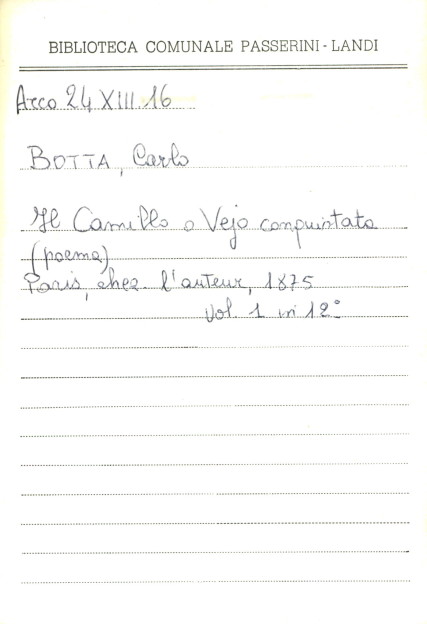 BIBLIOTECA COMUNALE PASSERINI - LANDI
Arco 24 XIII.16
BOTTA, Carlo
Il Camillo o Vejo conquistata
(poema)
Paris, chez l'auteur, 1875
Vol. 1 in 12°